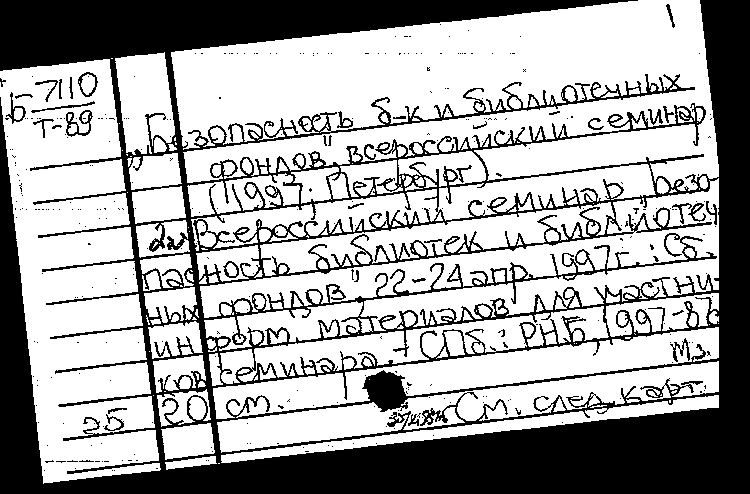 Б-7110
Т-89
"Безопасность б-к и библиотечных
фондов", всероссийский семинар
(1997; Петербург).
Всероссийский семинар „Безо-
пасность библиотек и библиотеч
ных фондов", 22-24 апр. 1997г.: Сб.
информ. материалов для участни-
ков семинара. - СПб.: РНБ, 1997.-8
М.З.
25 20 см.
См. след. карт.